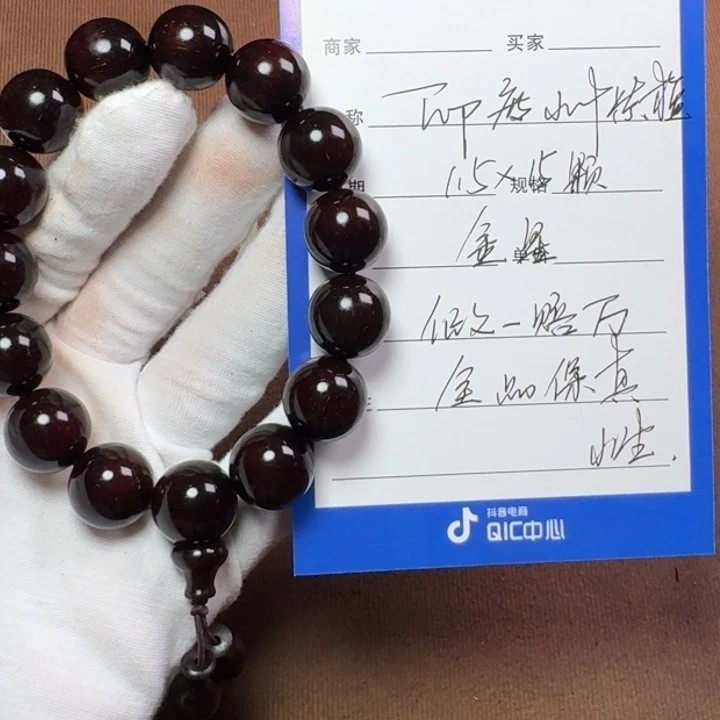 商家 买家
称 印度小叶紫檀
期 1.5×15颗 规格
金星
假一赔万
全品保真
抖音电商
QIC中心